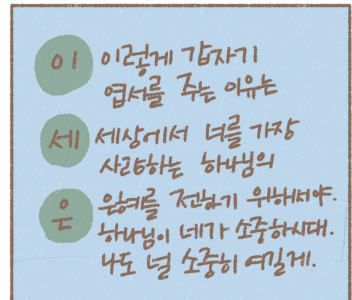 이 이렇게 갑자기
엽서를 주는 이유는
세 세상에서 너를 가장
사랑하는 하나님의
은 은혜를 전하기 위해서야.
하나님이 네가 소중하시대.
나도 널 소중히 여길게.